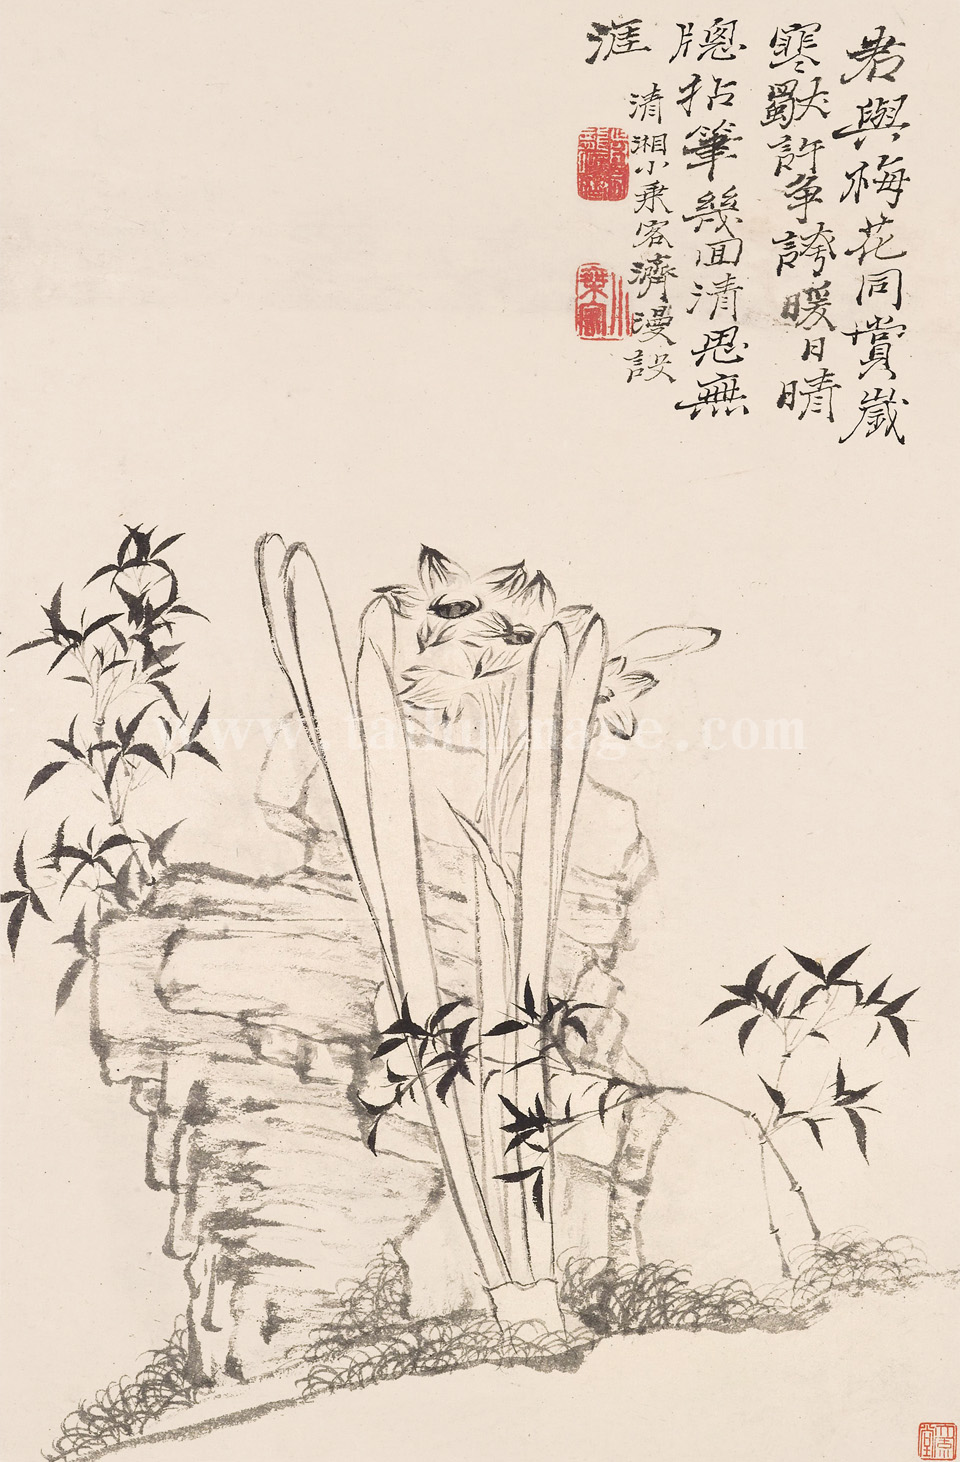 君與梅花同賞歲
寒獸許爭誇暖日晴
牕拈筆幾回清思無
涯
清湘小乘客濟漫設
小乘客
www.taihuimage.com